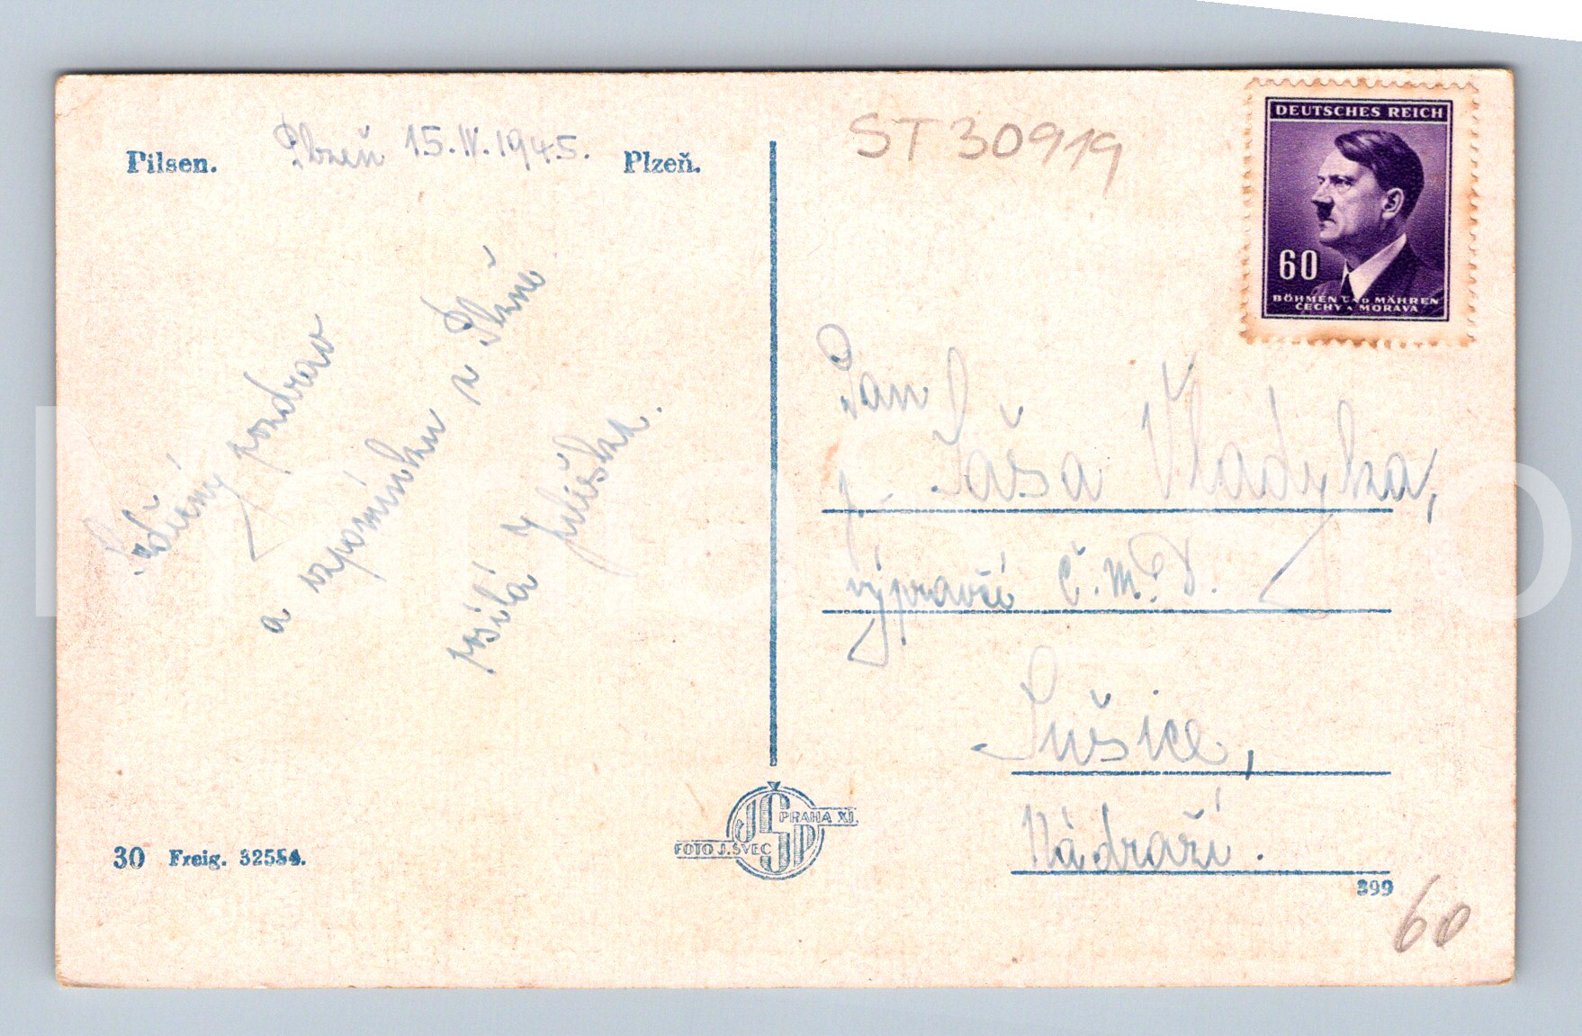 Pilsen. Plzeň 15.IV.1945. Plzeň.
ST30919
DEUTSCHES REICH
60
BÖHMEN UND MÄHREN
ČECHY A MORAVA
Srdečný pozdrav
a vzpomínku z Plzně
posílá
Pan
Sáša Vladyka,
výpravčí Č.M.D.
Sušice,
Nádraží.
PRAHA XI.
FOTO J. ŠVEC
30 Freig. 32554.
399
60